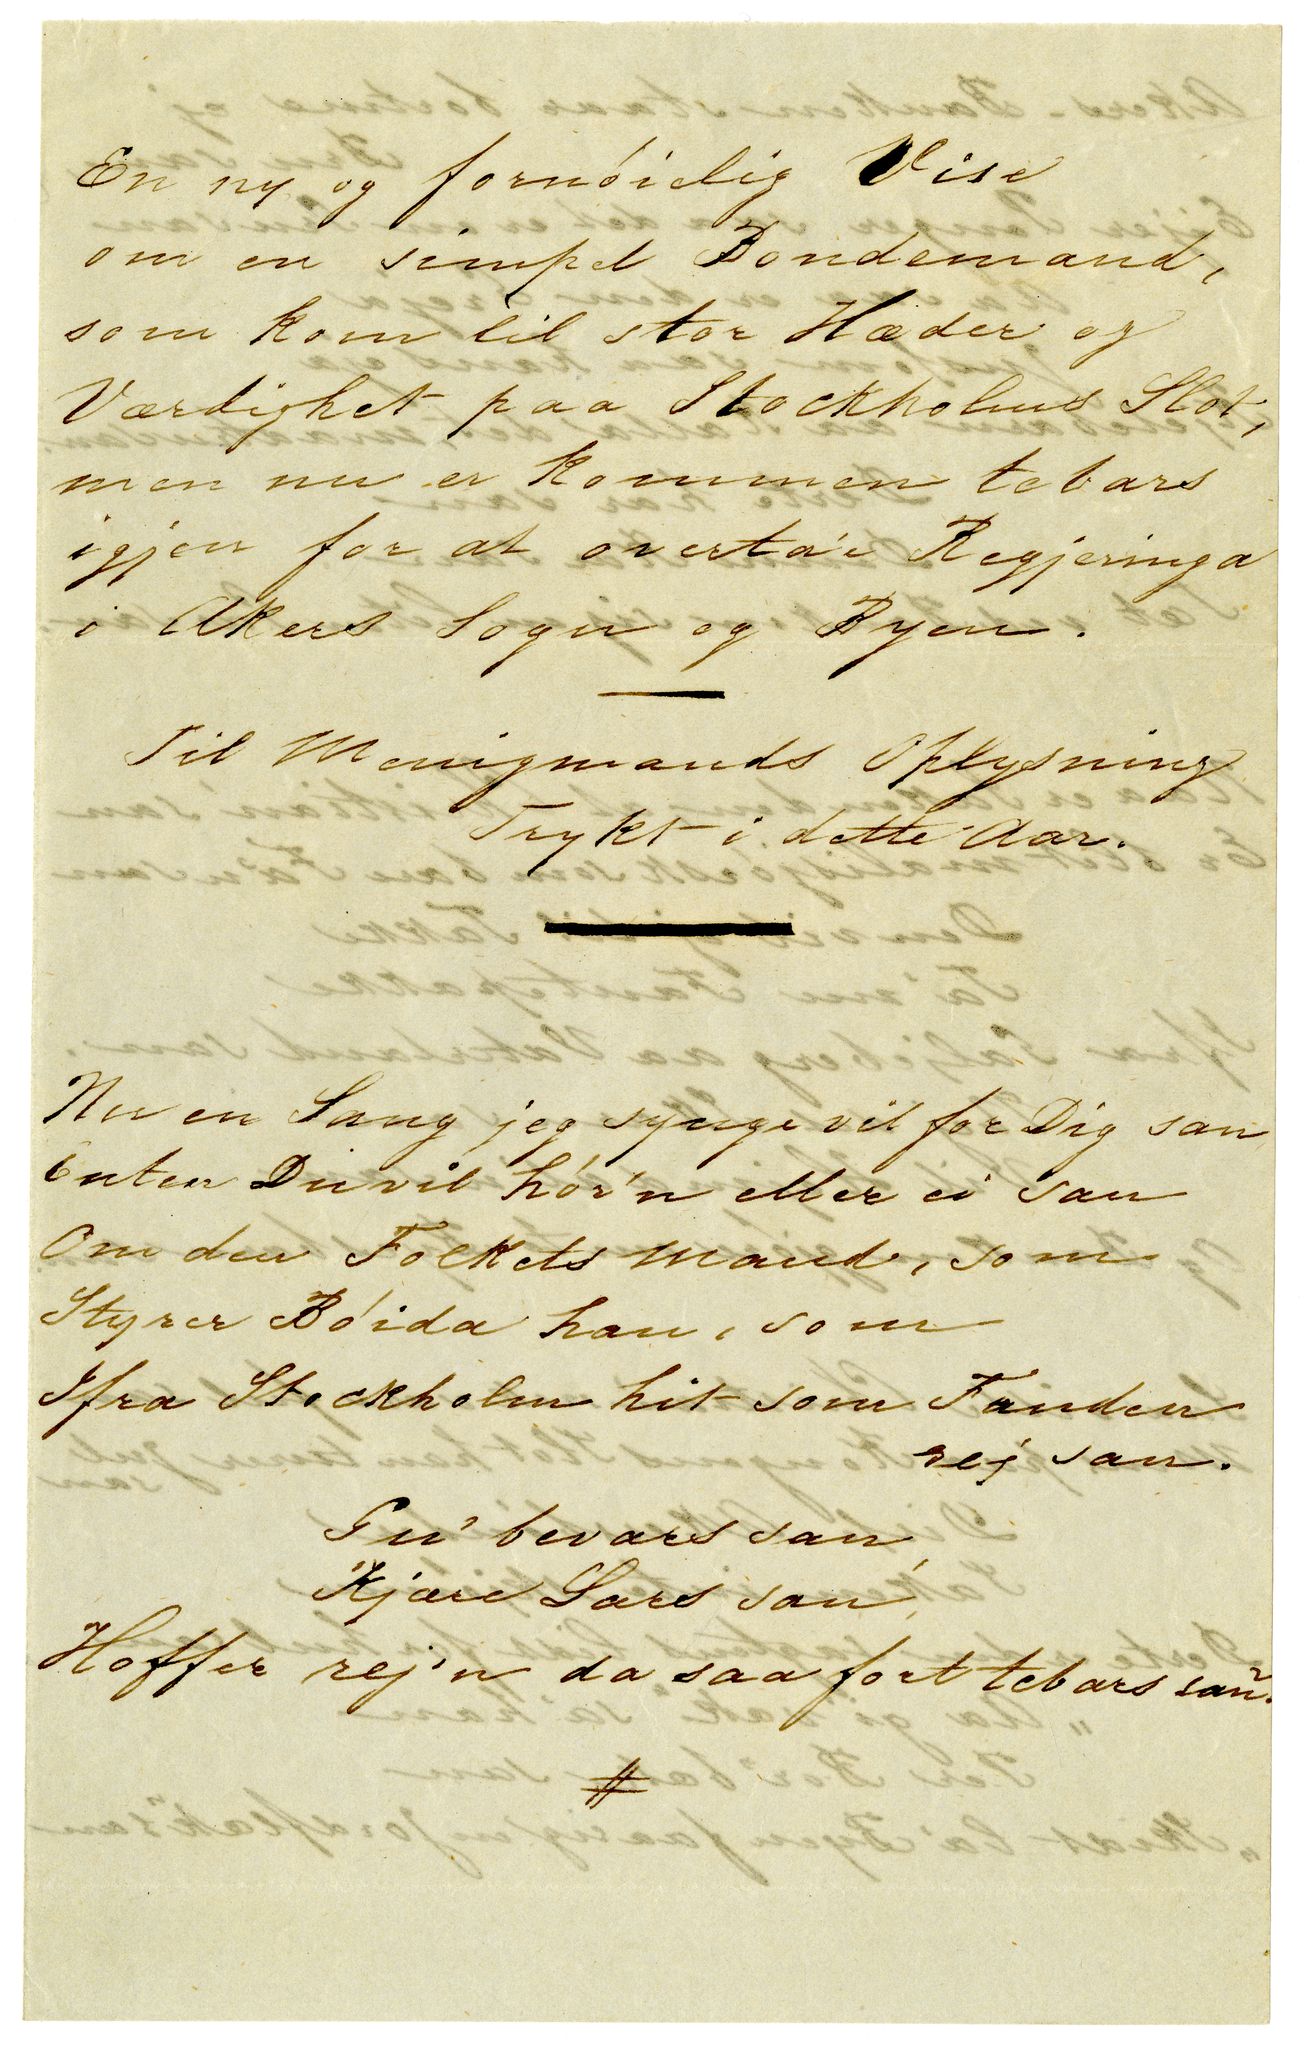 En ny og fornóielig Vise
om en simpel Bondemand,
som kom til stor Hæder og
Værdighet paa Stockholms Slot,
men nu er kommen tebars
igjen for at overta'e Regjeringa
i Akers Sogn og Byen.
Til Menigmands Oplysning
Trykt i dette Aar.
Nu en Sang jeg synge vil for Dig san
Enten Du vil hór'n eller ei san
Om den Folkets Mand, som
Styrer Bóida han, som
Ifra Stockholm hit som Fanden
rej san.
Gu' bevars san,
Kjære Lars san,
Hoffer rej'n da saa fort tebars san.